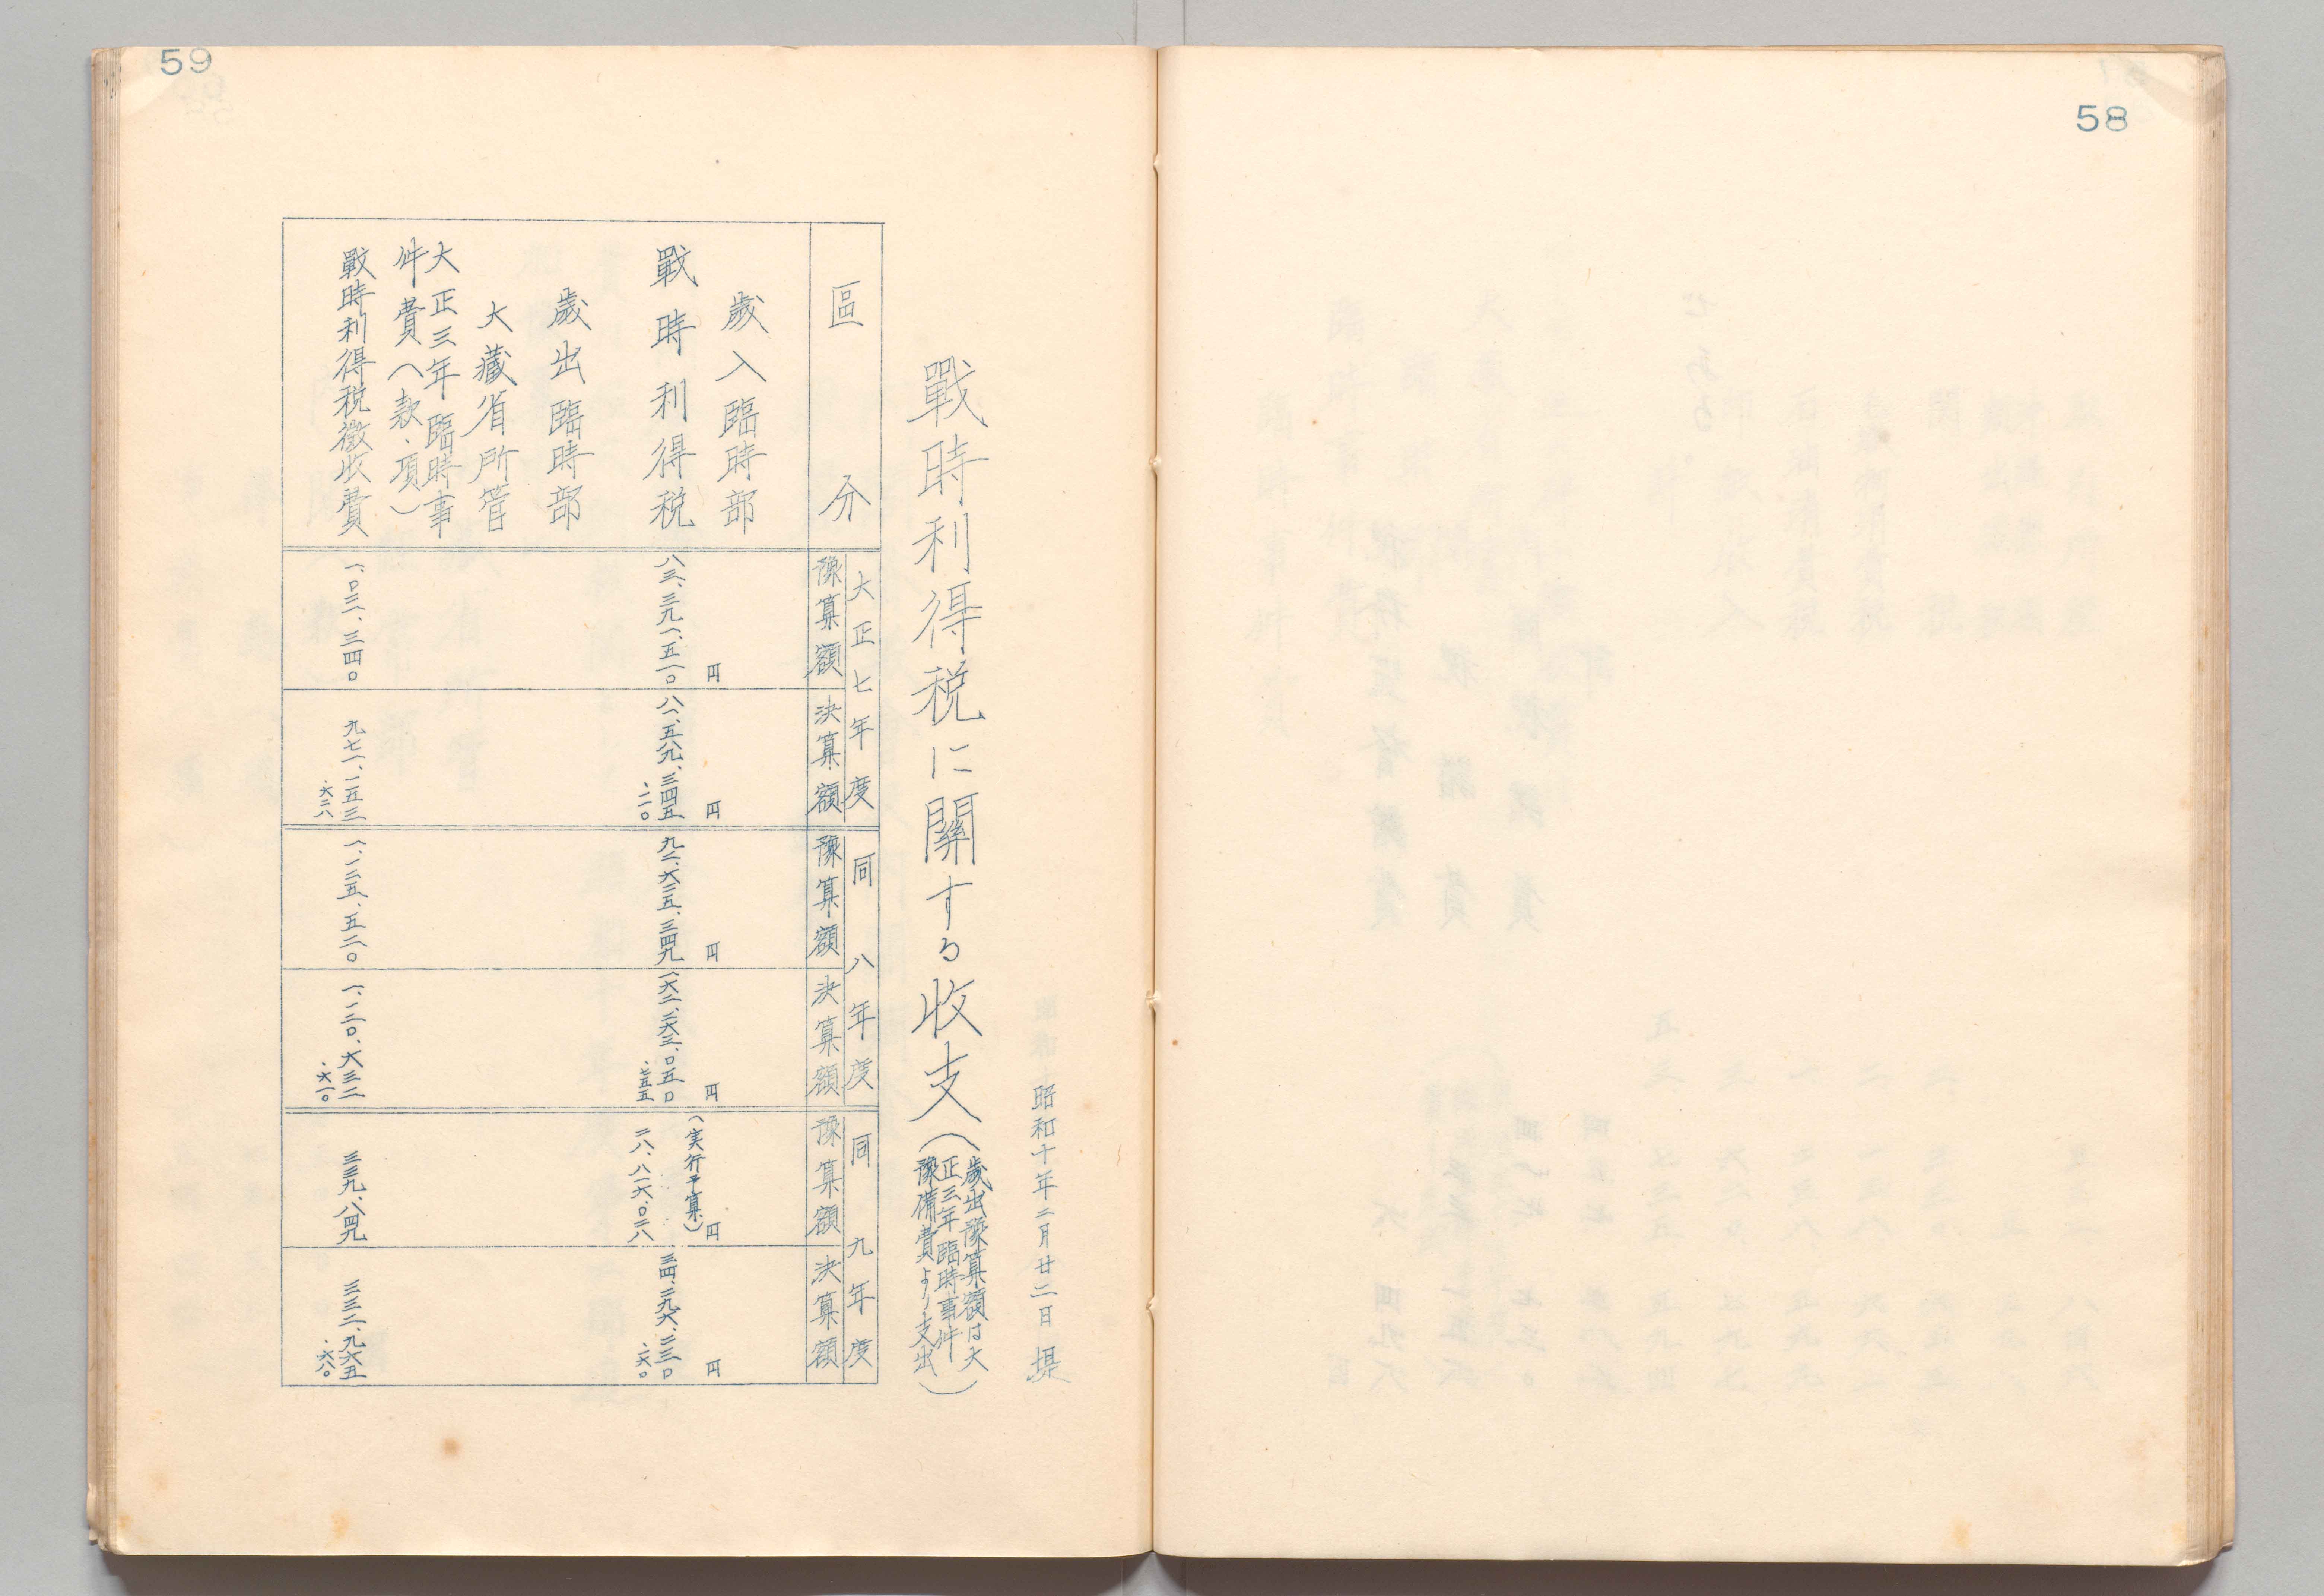 58
59
昭和十年二月廿二日 堤
戰時利得税に關する收支(歳出豫算額は大
正三年臨時事件
豫備費より支出)
區分
大正七年度
豫算額
決算額
同八年度
豫算額
決算額
同九年度
豫算額
決算額
歳入臨時部
円
円
円
円
(実行予算)円
円
戰時利得税
八三、三九一、五一〇
八一、五八九、三四五
九二、六二五、三四九
一六二、二六三、〇五〇
.七五五
二八、八一六、〇二八
三四、二九六、三三〇
歳出臨時部
大藏省所管
大正三年臨時事
件費(款、項)
戰時利得税徴收費
一、〇三一、三四〇
九七一、一五三
.六二八
一、一二五、五二〇
一、一二〇、六三二
.六一〇
三三九、八四九
三三二、九六五
.六八〇